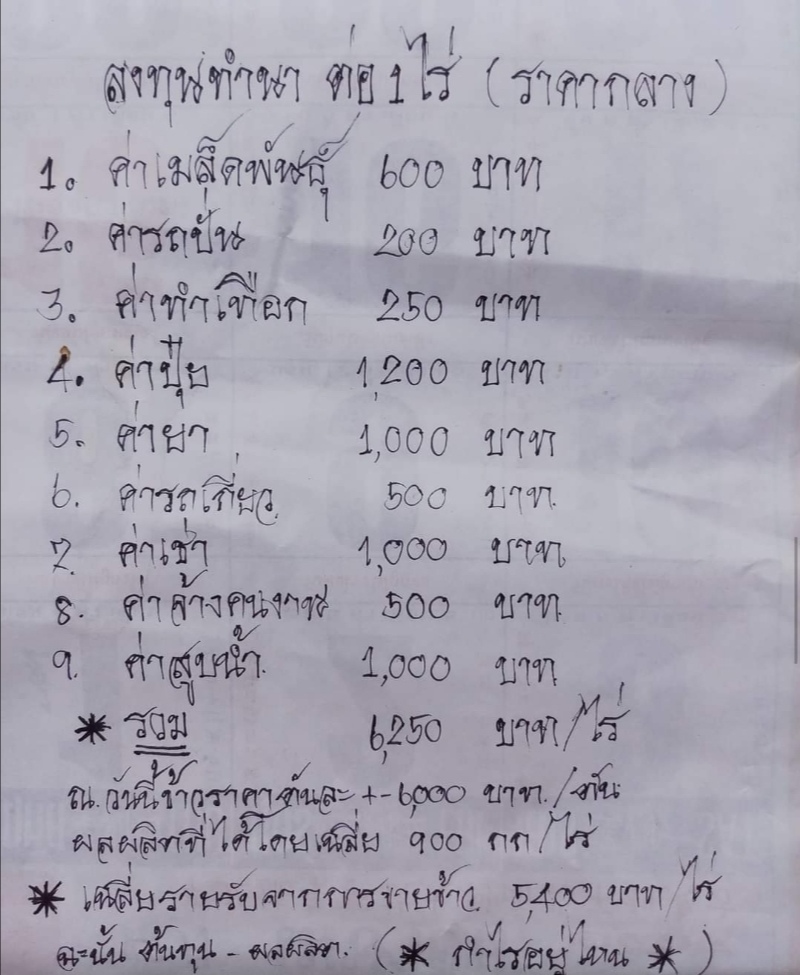 ลงทุนทำนา ต่อ 1 ไร่ (ราคากลาง)
1. ค่าเมล็ดพันธุ์ 600 บาท
2. ค่ารถปั่น 200 บาท
3. ค่าทำเทือก 250 บาท
4. ค่าปุ๋ย 1,200 บาท
5. ค่ายา 1,000 บาท
6. ค่ารถเกี่ยว 500 บาท
7. ค่าเช่า 1,000 บาท
8. ค่าจ้างคนงาน 500 บาท
9. ค่าสูบน้ำ 1,000 บาท
* รวม 6,250 บาท/ไร่
ณ.วันนี้ข้าวราคาตันละ +-6,000 บาท./ตัน
ผลผลิตที่ได้โดยเฉลี่ย 900 กก/ไร่
* เฉลี่ยรายรับจากการขายข้าว 5,400 บาท/ไร่
ฉะนั้น ต้นทุน - ผลผลิต. (* กำไรอยู่ไหน *)